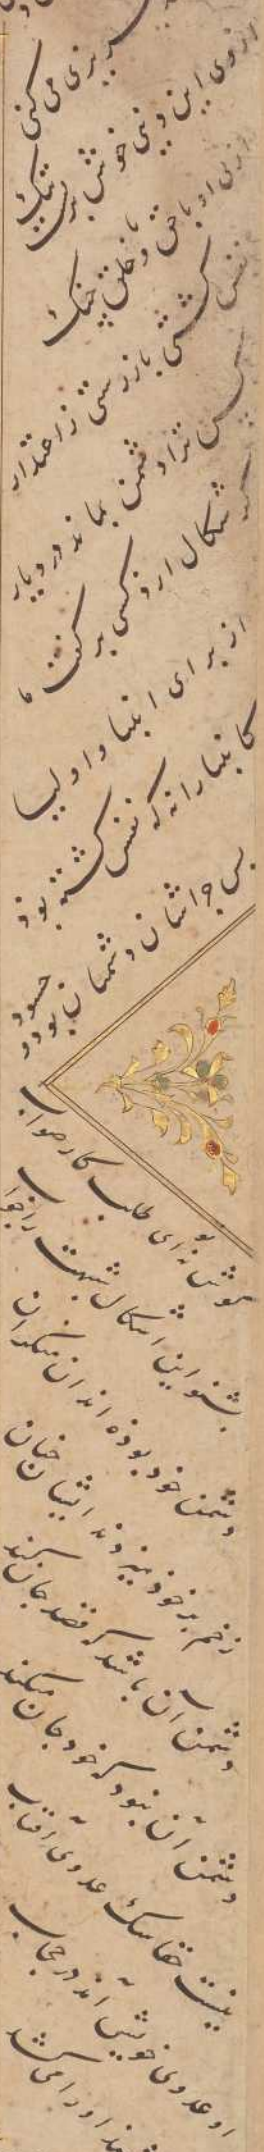 از وی این دنیی خوش بر تست تنگ
از پی او با حق و با خلق جنگ
نفس کشتی باز رستی ز اعتذار
کس ترا دشمن نماند در دیار
گر شکال آرد کسی بر گفت ما
از برای انبیا و اولیا
کانبیا را نه که نفس کشته بود
پس چراشان دشمنان بود و حسود
گوش نه تو ای طلب کار صواب
بشنو این اشکال شبهت را جواب
دشمن خود بوده‌اند آن منکران
زخم بر خود میزدند ایشان چنان
دشمن آن باشد که قصد جان کند
دشمن آن نبود که خود جان میکند
نیست خفاشک عدوی آفتاب
او عدوی خویش آمد در حجاب